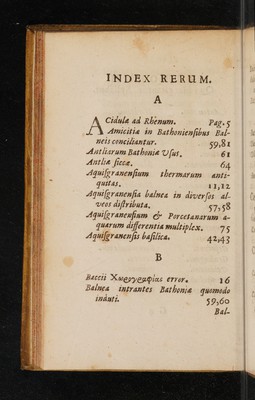 INDEX RERUM.
A
ACidulæ ad Rhenum. Pag. 5
Amicitia in Bathoniensibus Bal-
neis conciliantur. 59,81
Antliarum Bathoniæ Usus. 61
Antliæ siccæ. 64
Aquisgranensium thermarum anti-
quitas. 11,12
Aquisgranensia balnea in diversos al-
veos distributa. 57,58
Aquisgranensium & Porcetanarum a-
quarum differentia multiplex. 75
Aquisgranensis basilica. 42,43
B
Baccii Χωρογραφίας error. 16
Balnea intrantes Bathoniæ quomodo
induti. 59,60
Bal-